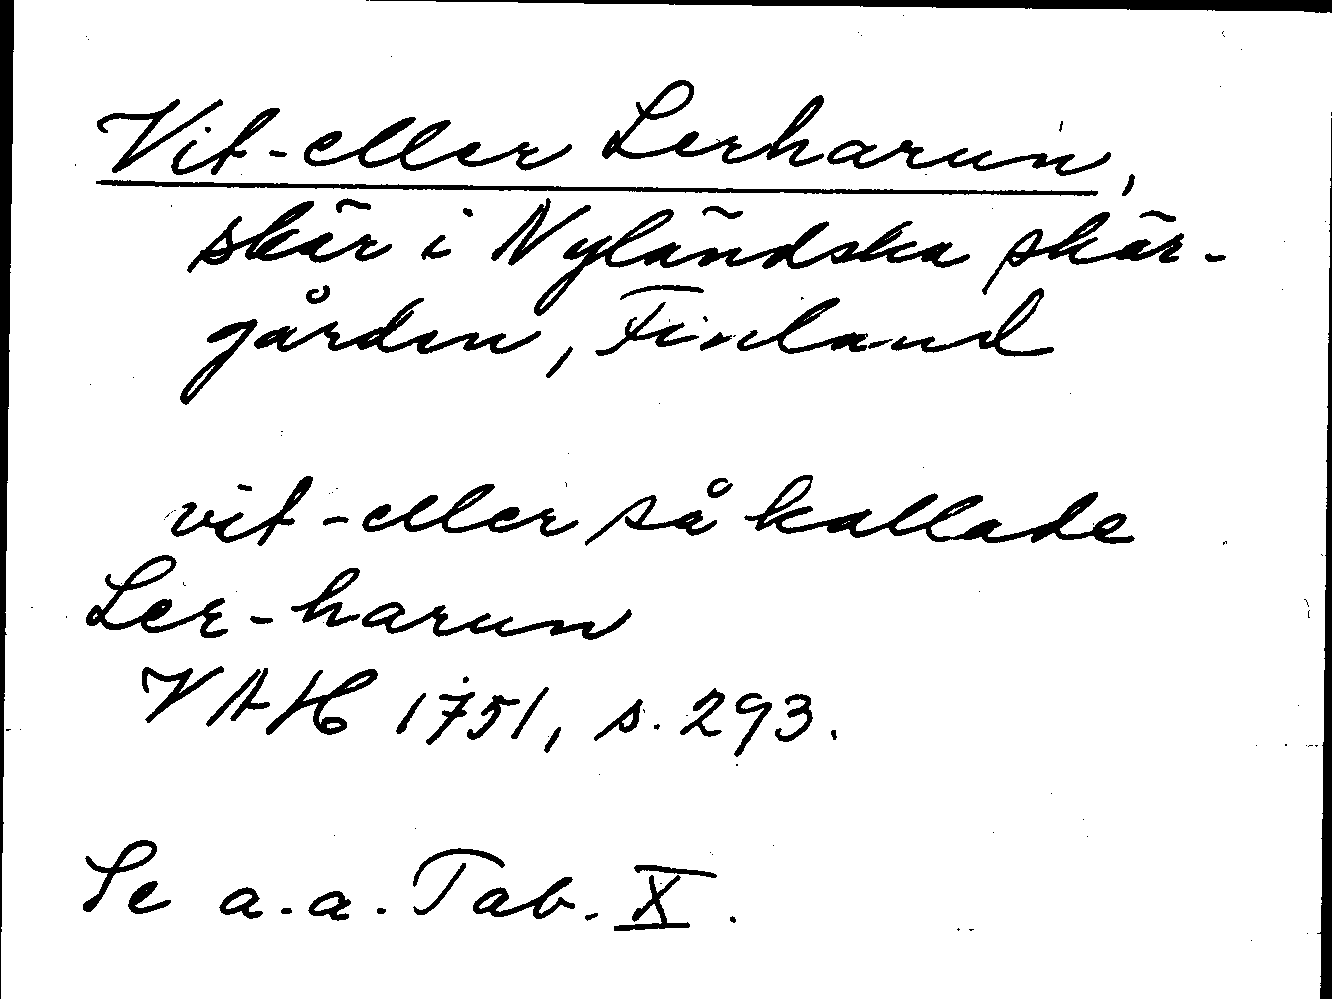 Vit- eller Lerharun,
skär i Nyländska skär-
gården, Finland
vit - eller så kallade
Ler-harun
VAH 1751, s. 293.
Se a.a. Tab. X.